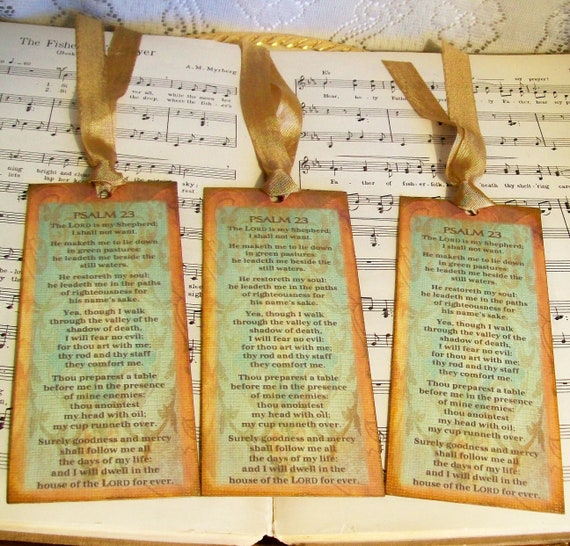 The Fishe
yer
A. M. Myrberg
PSALM 23
The LORD is my Shepherd;
I shall not want.
He maketh me to lie down
in green pastures:
he leadeth me beside the
still waters.
He restoreth my soul:
he leadeth me in the paths
of righteousness for
his name's sake.
Yea, though I walk
through the valley of the
shadow of death,
I will fear no evil:
for thou art with me;
thy rod and thy staff
they comfort me.
Thou preparest a table
before me in the presence
of mine enemies:
thou anointest
my head with oil;
my cup runneth over.
Surely goodness and mercy
shall follow me all
the days of my life:
and I will dwell in the
house of the LORD for ever.
PSALM 23
The LORD is my Shepherd;
I shall not want.
He maketh me to lie down
in green pastures:
he leadeth me beside the
still waters.
He restoreth my soul:
he leadeth me in the paths
of righteousness for
his name's sake.
Yea, though I walk
through the valley of the
shadow of death,
I will fear no evil:
for thou art with me;
thy rod and thy staff
they comfort me.
Thou preparest a table
before me in the presence
of mine enemies:
thou anointest
my head with oil;
my cup runneth over.
Surely goodness and mercy
shall follow me all
the days of my life:
and I will dwell in the
house of the LORD for ever.
PSALM 23
The LORD is my Shepherd;
I shall not want.
He maketh me to lie down
in green pastures:
he leadeth me beside the
still waters.
He restoreth my soul:
he leadeth me in the paths
of righteousness for
his name's sake.
Yea, though I walk
through the valley of the
shadow of death,
I will fear no evil:
for thou art with me;
thy rod and thy staff
they comfort me.
Thou preparest a table
before me in the presence
of mine enemies:
thou anointest
my head with oil;
my cup runneth over.
Surely goodness and mercy
shall follow me all
the days of my life:
and I will dwell in the
house of the LORD for ever.